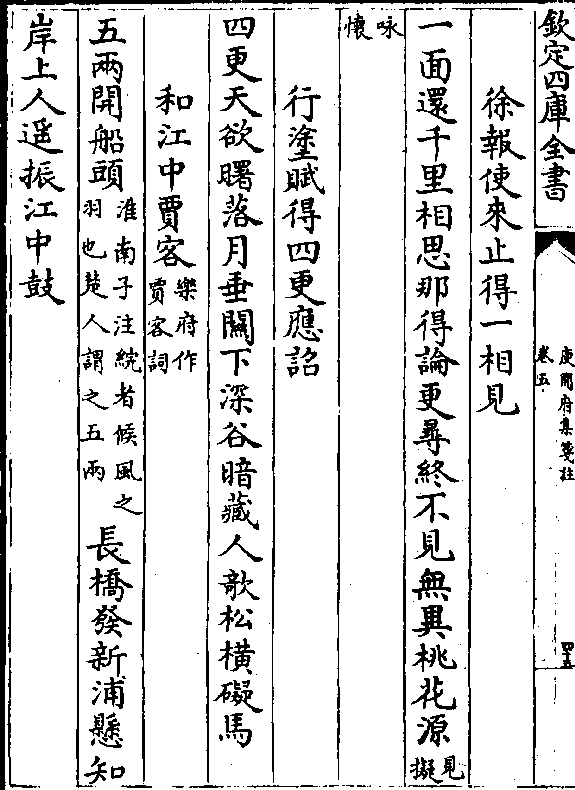 欽定四庫全書
庾開府集箋註
卷五
四十五
徐報使來止得一相見
一面還千里相思那得論更尋終不見無異桃花源見擬
咏懷
行塗賦得四更應詔
四更天欲曙落月垂關下深谷暗藏人欹松橫礙馬
和江中賈客樂府作賈客詞
五兩開船頭淮南子注綄者候風之羽也楚人謂之五兩長橋發新浦懸知
岸上人遥振江中鼓